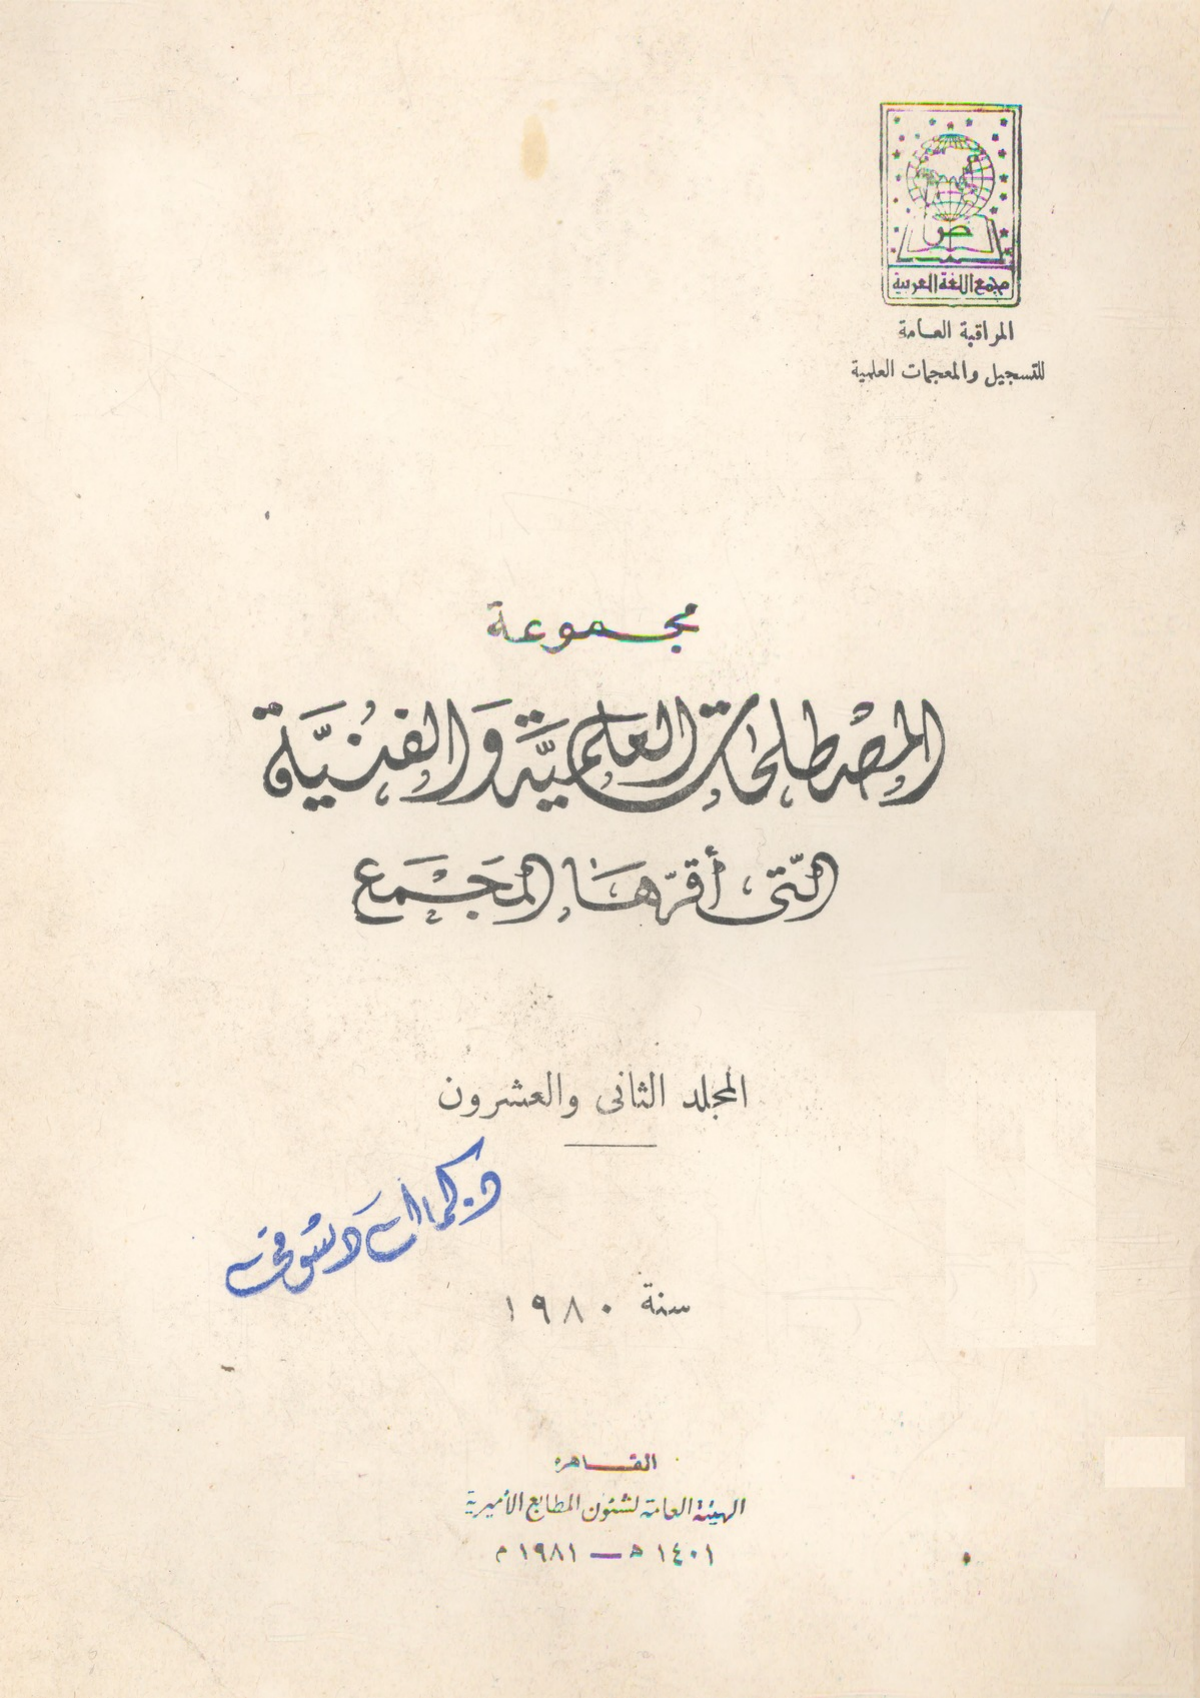 ض
مجمع اللغة العربية
المراقبة العامة
للتسجيل والمعجمات العلمية
مجموعة
المصْطلحات العلميَّة وَالفنُيَّة
التّى أقرّهَا المجَمع
المجلد الثانى والعشرون
د. كمال دسوقى
سنة ١٩٨٠
القاهرة
الهيئة العامة لشئون المطابع الأميرية
١٤٠١ ه — ١٩٨١ م